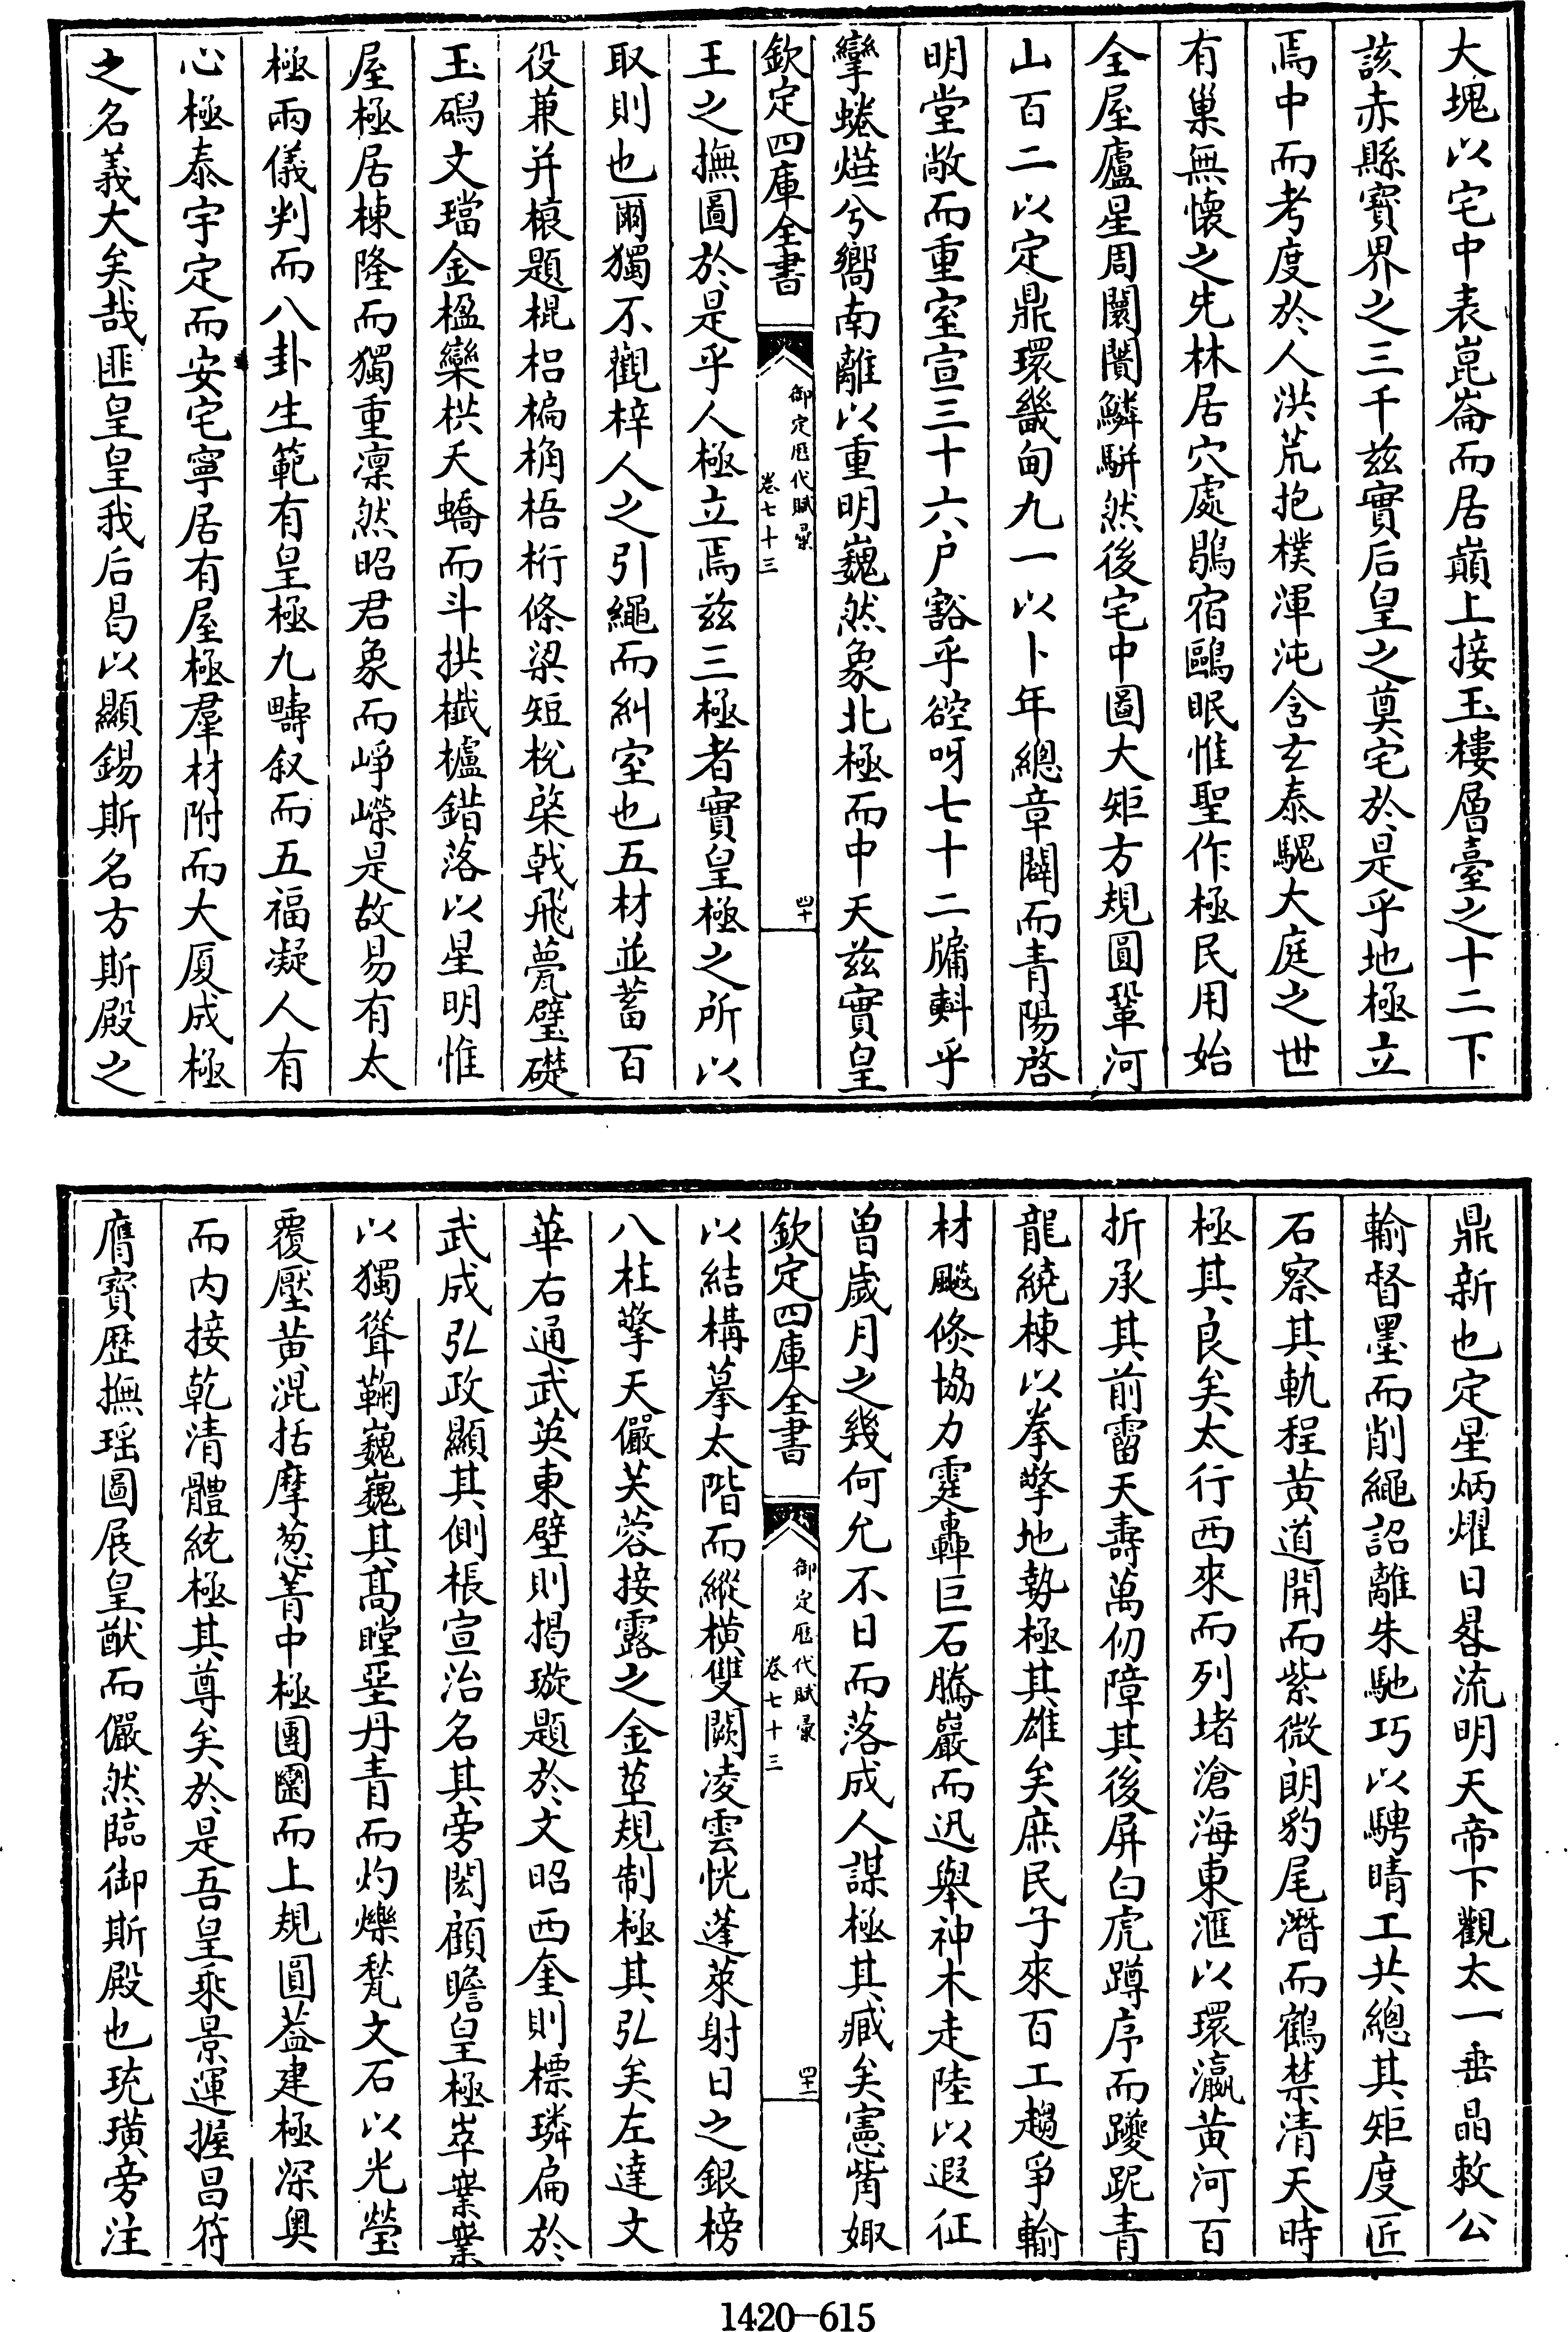 大塊以宅中表崑崙而居巔上接玉樓層臺之十二下
該赤縣寶界之三千茲實后皇之奠宅於是乎地極立
焉中而考度於人洪荒抱樸渾沌含玄泰騩大庭之世
有巢無懷之先林居穴處鶡宿鷗眠惟聖作極民用始
全屋廬星周闤闠鱗駢然後宅中圖大矩方規圓鞏河
山百二以定鼎環畿甸九一以卜年總章闢而青陽啓
明堂敞而重室宣三十六户豁乎谾呀七十二牖㪺乎
攣蜷爀兮嚮南離以重明巍然象北極而中天茲實皇
欽定四庫全書
御定歷代賦彙
卷七十三
四十
王之撫圖於是乎人極立焉茲三極者實皇極之所以
取則也爾獨不觀梓人之引繩而糾室也五材並蓄百
役兼并榱題棍梠楄桷梧桁條梁短梲棨戟飛甍璧礎
玉磶文璫金楹欒栱夭蟜而斗拱櫼櫨錯落以星明惟
屋極居棟隆而獨重凛然昭君象而崢嶸是故易有太
極兩儀判而八卦生範有皇極九疇叙而五福凝人有
心極泰宇定而安宅寧居有屋極羣材附而大厦成極
之名義大矣哉匪皇皇我后曷以顯錫斯名方斯殿之
鼎新也定星炳燿日晷流明天帝下觀太一垂晶敕公
輸督墨而削繩詔離朱馳巧以騁晴工共總其矩度匠
石察其軌程黃道開而紫微朗豹尾潛而鶴禁清天時
極其良矣太行西來而列堵滄海東滙以環瀛黃河百
折承其前霤天壽萬仞障其後屏白虎蹲序而躨跜青
龍繞棟以拳擎地勢極其雄矣庶民子來百工趨爭輸
材飈倐協力霆轟巨石騰巖而迅舉神木走陸以遐征
曽歲月之幾何允不日而落成人謀極其臧矣憲觜娵
欽定四庫全書
御定歷代賦彙
卷七十三
四十一
以結構摹太階而縱橫雙闕凌雲恍蓬萊射日之銀榜
八柱擎天儼芙蓉接露之金莖規制極其弘矣左達文
華右通武英東壁則揭璇題於文昭西奎則標璘扁於
武成弘政顯其側棖宣治名其旁閎顧瞻皇極崒嶪嶪
以獨聳䩕巍巍其髙瞠堊丹青而灼爍甃文石以光瑩
覆壓黃混括摩葱菁中極團圞而上規圓葢建極深奥
而内接乾清體統極其尊矣於是吾皇乘景運握昌符
膺寶歴撫瑶圖展皇猷而儼然臨御斯殿也珫璜旁注
1420—615